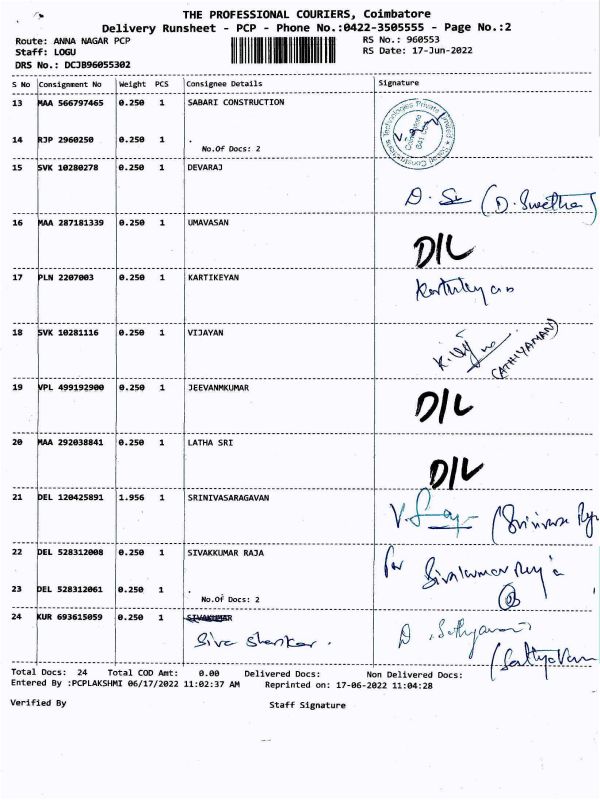 THE PROFESSIONAL COURIERS, Coimbatore
Delivery Runsheet - PCP - Phone No.:0422-3505555 - Page No.:2
Route: ANNA NAGAR PCP RS No.: 960553
Staff: LOGU RS Date: 17-Jun-2022
DRS No.: DCJB96055302
S No Consignment No Weight PCS Consignee Details Signature
13 MAA 566797465 0.250 1 SABARI CONSTRUCTION
14 RJP 2960250 0.250 1 .
No.Of Docs: 2
15 SVK 10280278 0.250 1 DEVARAJ
(D. Swetha)
16 MAA 287181339 0.250 1 UMAVASAN
D/L
17 PLN 2207003 0.250 1 KARTIKEYAN
18 SVK 10281116 0.250 1 VIJAYAN
(ATHIYAMAN)
19 VPL 499192900 0.250 1 JEEVANMKUMAR
D/L
20 MAA 292038841 0.250 1 LATHA SRI
D/L
21 DEL 120425891 1.956 1 SRINIVASARAGAVAN
22 DEL 528312008 0.250 1 SIVAKKUMAR RAJA
for Sivakumar
23 DEL 528312061 0.250 1 .
No.Of Docs: 2
24 KUR 693615059 0.250 1 SIVAKUMAR
Siva Shankar.
Total Docs: 24 Total COD Amt: 0.00 Delivered Docs: Non Delivered Docs:
Entered By :PCPLAKSHMI 06/17/2022 11:02:37 AM Reprinted on: 17-06-2022 11:04:28
Verified By Staff Signature